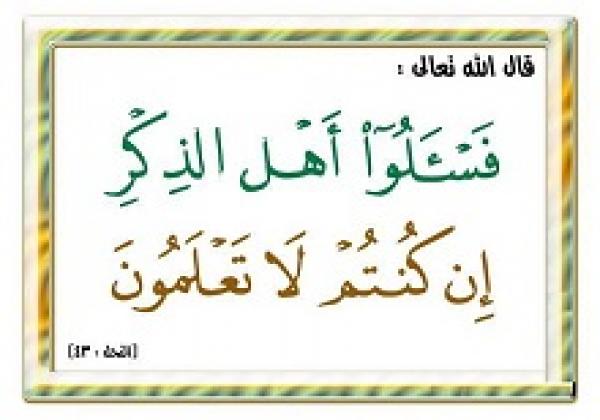 قال الله تعالى :
فَسْـَٔلُوٓا۟ أَهْلَ الذِّكْرِ
إِن كُنتُمْ لَا تَعْلَمُونَ
(النحل : ٤٣)